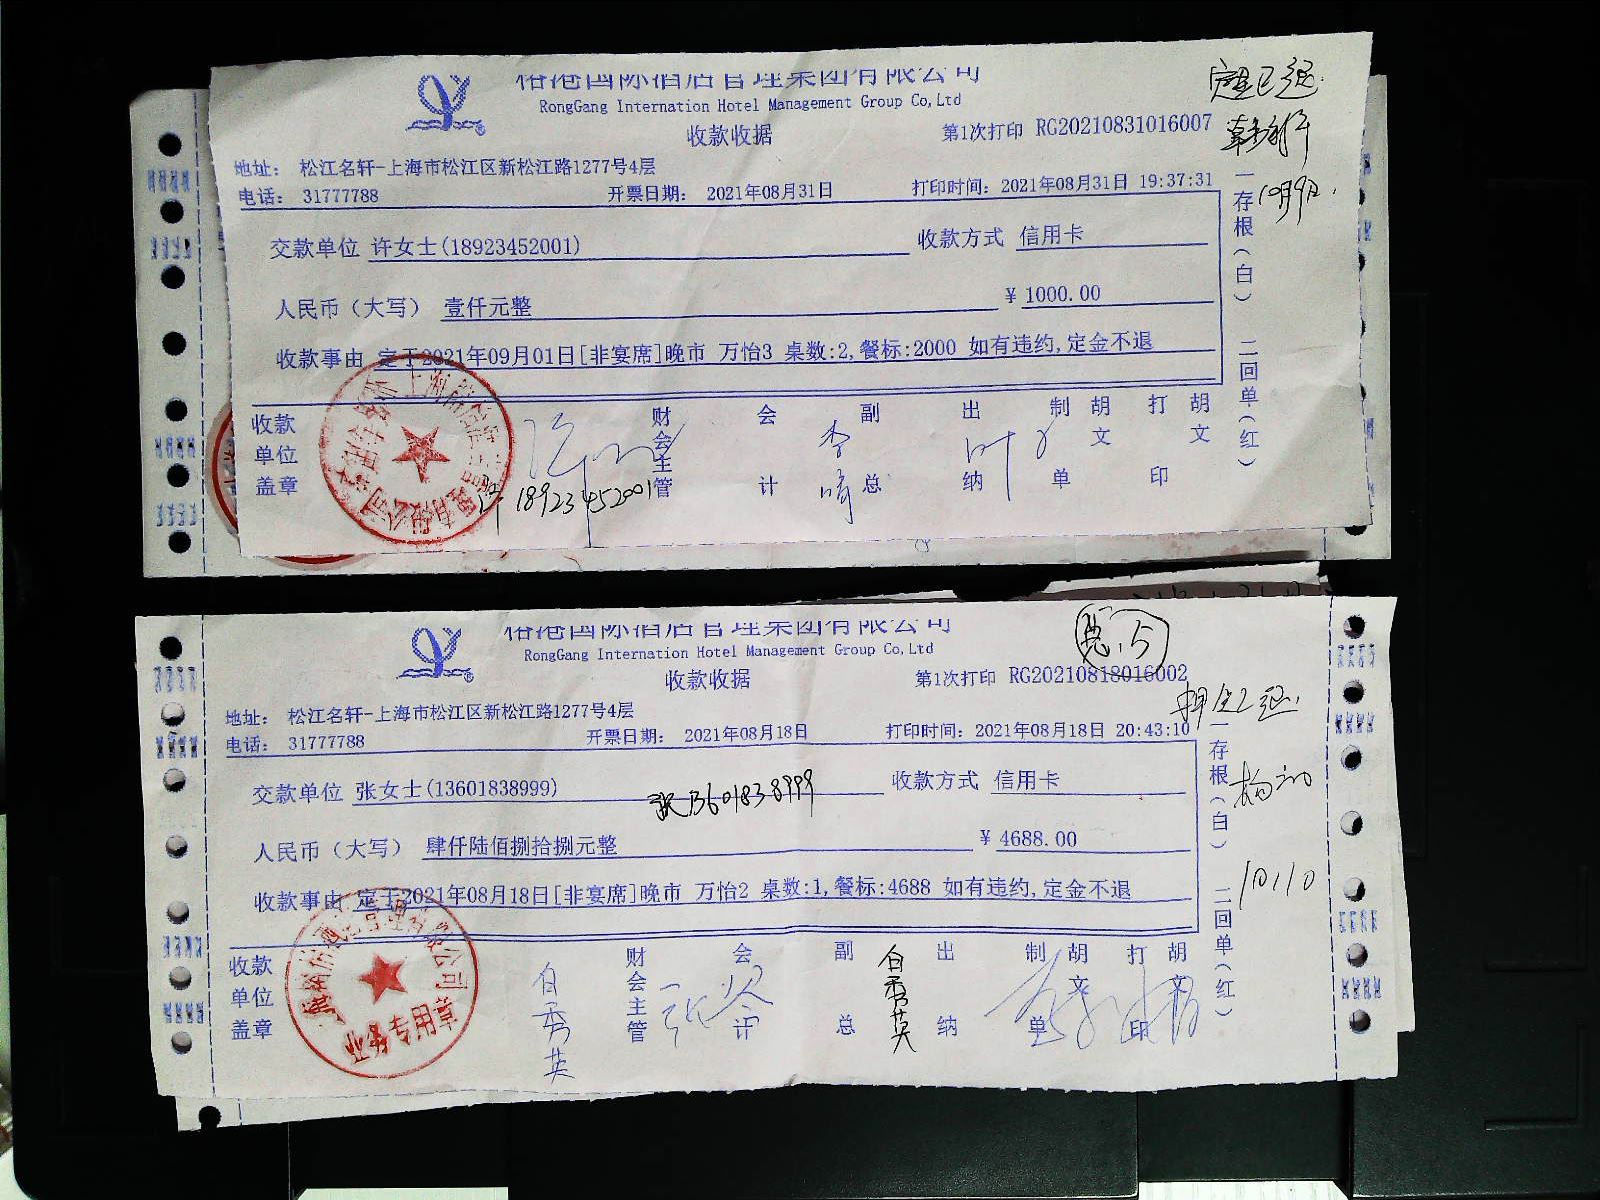 裕港国际酒店管理集团有限公司
RongGang Internation Hotel Management Group Co,Ltd
收款收据
第1次打印 RG20210831016007
地址: 松江名轩-上海市松江区新松江路1277号4层
电话: 31777788 开票日期: 2021年08月31日 打印时间: 2021年08月31日 19:37:31
10月9日.
交款单位 许女士(18923452001) 收款方式 信用卡
人民币(大写) 壹仟元整 ¥ 1000.00
收款事由 定于2021年09月01日[非宴席]晚市 万怡3 桌数:2,餐标:2000 如有违约,定金不退
一存根(白) 二回单(红)
收款单位盖章 财会主管 会计 副总 出纳 制单 胡文 打印 胡文
许 18923452001
裕港国际酒店管理集团有限公司
RongGang Internation Hotel Management Group Co,Ltd
收款收据
第1次打印 RG20210818016002
押金已退.
地址: 松江名轩-上海市松江区新松江路1277号4层
电话: 31777788 开票日期: 2021年08月18日 打印时间: 2021年08月18日 20:43:10
交款单位 张女士(13601838999) 张13601838999 收款方式 信用卡
人民币(大写) 肆仟陆佰捌拾捌元整 ¥ 4688.00
10.10
收款事由 定于2021年08月18日[非宴席]晚市 万怡2 桌数:1,餐标:4688 如有违约,定金不退
一存根(白) 二回单(红)
收款单位盖章 财会主管 会计 副总 出纳 制单 胡文 打印 胡文
白秀英 白秀英
业务专用章